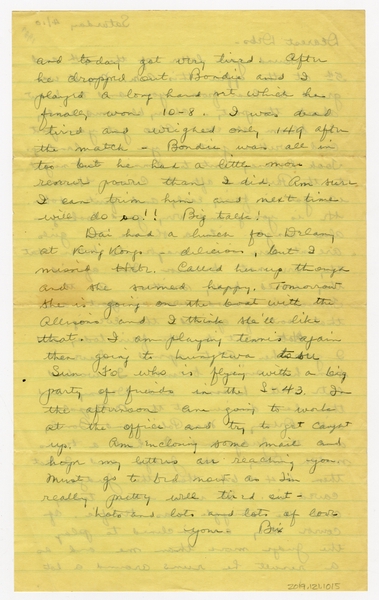 and today got very tired. After
he dropped out Bondie and I
played a long hard set which he
finally won 10-8. I was dead
tired and weighed only 149 after
the match - Bondie was all in
too but he had a little more
reserve power than I did. Am sure
I can trim him and next time
will do so!! Big talk!
Dai had a lunch for
at King Kong - delicious, but I
missed Called her up though
and she seemed happy. Tomorrow
she is going on the boat with the
Allisons and I think she'll like
that. I am playing tennis again
then going to to see
Sun Fo who is flying with a big
party of friends in the S-43. In
the afternoon am going to work
at the office and try to get caught
up. Am inclosing some mail and
hope my letters are reaching you.
Must go to bed now as I'm
really pretty well tired out -
Lots and lots and lots of love
yours - Bix
2019.121.1015